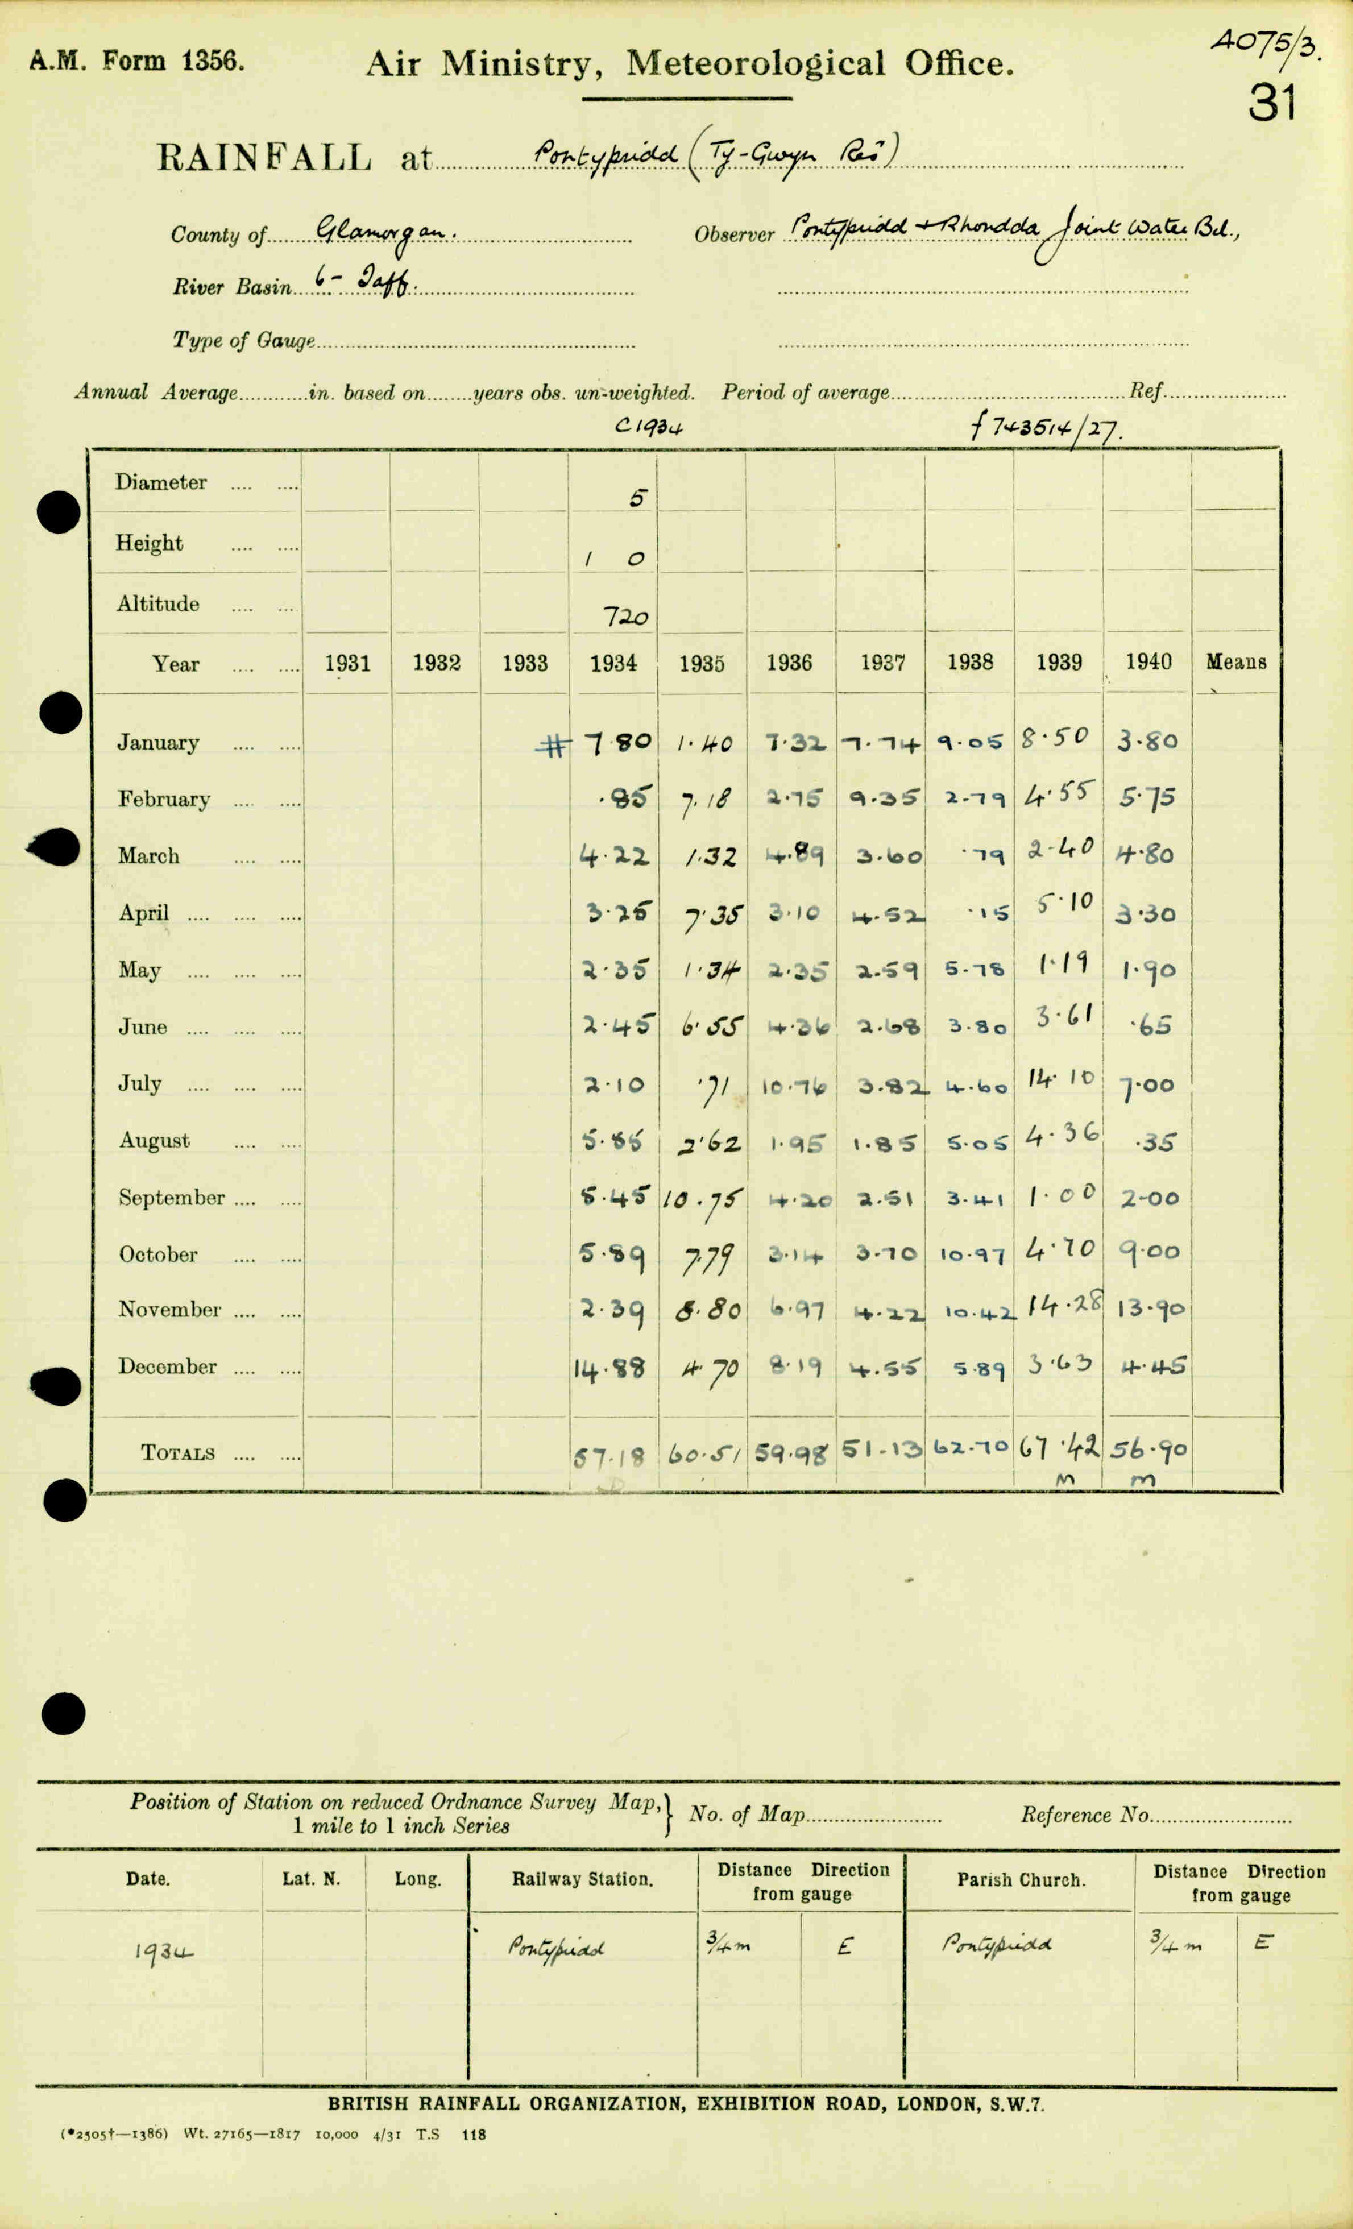 A075/3.
A.M. Form 1356. Air Ministry, Meteorological Office.
31
RAINFALL at Pontypridd (Ty-Gwyn Res)
County of Glamorgan. Observer Pontypridd + Rhondda Joint Water Bd.,
River Basin 6 - Taff.
Type of Gauge
Annual Average in. based on years obs. un-weighted. Period of average Ref.
C1934 f 743514/27.
Diameter 5
Height 1 0
Altitude 720
Year 1931 1932 1933 1934 1935 1936 1937 1938 1939 1940 Means
January # 7.80 1.40 7.32 7.74 9.05 8.50 3.80
February .85 7.18 2.75 9.35 2.79 4.55 5.75
March 4.22 1.32 4.89 3.60 .79 2.40 4.80
April 3.25 7.35 3.10 4.52 .15 5.10 3.30
May 2.35 1.34 2.35 2.59 5.78 1.19 1.90
June 2.45 6.55 4.36 2.68 3.80 3.61 .65
July 2.10 .71 10.76 3.82 4.60 14.10 7.00
August 5.55 2.62 1.95 1.85 5.05 4.36 .35
September 5.45 10.75 4.20 2.51 3.41 1.00 2.00
October 5.89 7.79 3.14 3.70 10.97 4.70 9.00
November 2.39 8.80 6.97 4.22 10.42 14.28 13.90
December 14.88 4.70 8.19 4.55 5.89 3.63 4.45
TOTALS 57.18 60.51 59.98 51.13 62.70 67.42 56.90
m m
Position of Station on reduced Ordnance Survey Map, } No. of Map Reference No.
1 mile to 1 inch Series
Date. Lat. N. Long. Railway Station. Distance Direction from gauge Parish Church. Distance Direction from gauge
1934 Pontypridd 3/4 m E Pontypridd 3/4 m E
BRITISH RAINFALL ORGANIZATION, EXHIBITION ROAD, LONDON, S.W.7.
(*2505†—1386) Wt. 27165—1817 10,000 4/31 T.S 118